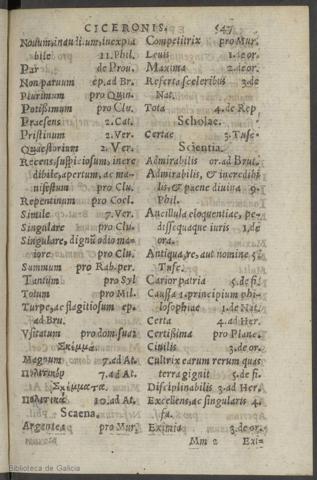 CICERONIS. 547
Nouum, inauditum, inexpia
bile 11. Phil.
Par de Prou.
Non paruum ep. ad Br.
Plurimum pro Quin.
Potißimum pro Clu.
Praesens 2. Cat.
Pristinum 2. Ver.
Quaestorium 2. Ver.
Recens, suspiciosum, incre
dibile, apertum, ac ma-
nifestum pro Clu.
Repentinum pro Coel.
Simile 7. Ver.
Singulare pro Clu.
Singulare, dignũ odio ma-
iore pro Clu.
Summum pro Rab. per.
Tantum pro Syl
Totum pro Mil.
Turpe, ac flagitiosum ep.
ad Bru.
Vsitatum pro dom. sua
Σκίμμα
Magnum 7. ad At.
Πολιτικὸν 7. ad At.
Σκίμματα.
Πολιτικὰ 10. ad At.
Scaena.
Argentea pro Mur.
Competitrix pro Mur.
Leuis 1. de or.
Maxima 2. de or.
Referta sceleribus 3. de
Nat.
Tota 4. de Rep
Scholae.
Certae 3. Tusc.
Scientia.
Admirabilis or. ad Brut.
Admirabilis, & incredibi
lis, & paene diuina 9.
Phil.
Ancillula eloquentiae, pe-
dissequaque iuris 1. de
ora.
Antiqua, re, aut nomine 5.
Tusc.
Carior patria 5. de fi.
Caussa 1. principium phi-
losophiae 1. de Nat.
Certa 4. ad Her.
Certißima pro Planc.
Ciuilis 3. de or.
Cultrix earum rerum quas
terra gignit 5. de fi.
Disciplinabilis 3. ad Her.
Excellens, ac singularis 4.
fa.
Eximia 3. de or.
Mm 2 Exi-
Biblioteca de Galicia